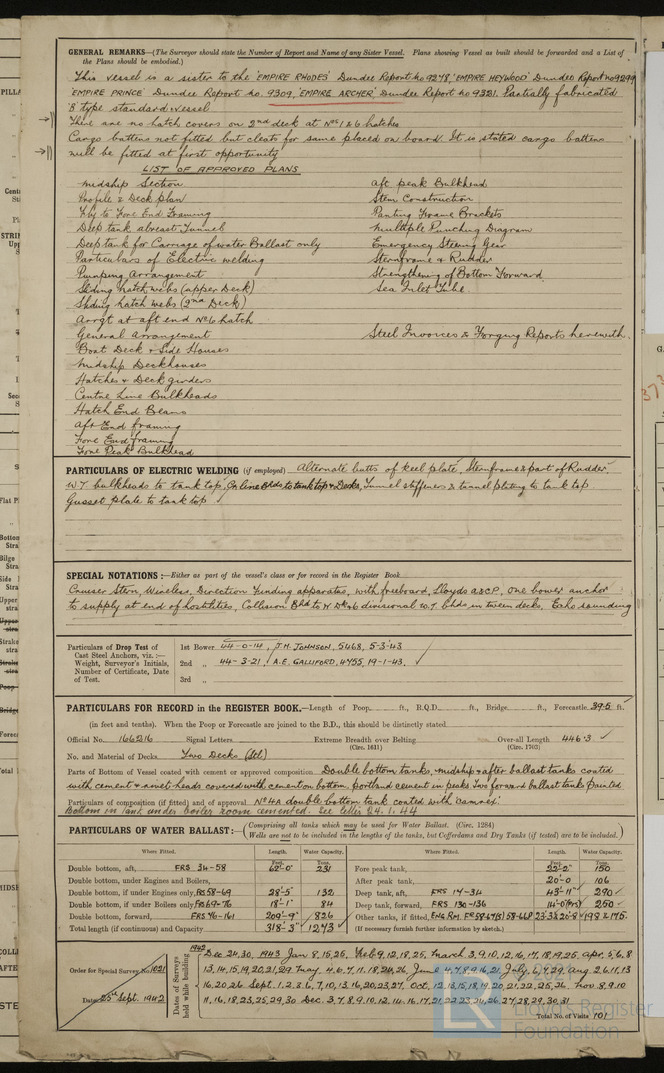 GENERAL REMARKS—(The Surveyor should state the Number of Report and Name of any Sister Vessel. Plans showing Vessel as built should be forwarded and a List of
the Plans should be embodied.)
This vessel is a sister to the 'EMPIRE RHODES' Dundee Report No 9278, 'EMPIRE HEYWOOD' Dundee Report No 9299
'EMPIRE PRINCE' Dundee Report No. 9309, 'EMPIRE ARCHER' Dundee Report No 9321. Partially fabricated
'B' type standard vessel
There are no hatch covers on 2nd deck at Nos 1 & 6 hatches
Cargo battens not fitted but cleats for same placed on board. It is stated cargo battens
will be fitted at first opportunity
LIST OF APPROVED PLANS
Midship Section
Profile & Deck plan
Key to Fore End Framing
Deep tank abreast Tunnel
Deep tank for Carriage of water Ballast only
Particulars of Electric welding
Pumping Arrangement
Sliding hatch webs (upper Deck)
Sliding hatch webs (2nd Deck)
Arrgt at aft end No 6 hatch
General arrangement
Boat Deck & Side Houses
Midship Deckhouses
Hatches & Deck girders
Centre Line Bulkheads
Hatch End Beams
Aft End framing
Fore End framing
Fore Peak Bulkhead
Aft peak Bulkhead
Stem Construction
Panting Frame Brackets
Multiple Punching Diagram
Emergency Steering Gear
Sternframe & Rudder
Strengthening of Bottom Forward
Sea Inlet Tube
Steel Invoices & Forging Reports herewith
PARTICULARS OF ELECTRIC WELDING (if employed) Alternate butts of keel plate, Sternframe & part of Rudder,
W.T. bulkheads to tank top, Cr line Bhds to tank top & Decks, Tunnel stiffeners & tunnel plating to tank top
Gusset plate to tank top
SPECIAL NOTATIONS:—Either as part of the vessel's class or for record in the Register Book
Cruiser Stern, Wireless, Direction Finding apparatus, with freeboard, Lloyds A & C.P. One bower anchor
to supply at end of hostilities, Collision Bhd to Echo sounding
Particulars of Drop Test of
Cast Steel Anchors, viz. :—
Weight, Surveyor's Initials,
Number of Certificate, Date
of Test.
1st Bower 44-0-14, J.H. JOHNSON, 5468, 5-3-43
2nd ,, 44-3-21, A.E. GALLIFORD, 4755, 19-1-43.
3rd ,,
PARTICULARS FOR RECORD in the REGISTER BOOK.—Length of Poop ft., R.Q.D. ft., Bridge ft., Forecastle 39.5 ft.
(in feet and tenths). When the Poop or Forecastle are joined to the B.D., this should be distinctly stated
Official No. 166216 Signal Letters Extreme Breadth over Belting Over-all Length 446.3
(Circ. 1611) (Circ. 1703)
No. and Material of Decks Two Decks (Stl)
Parts of Bottom of Vessel coated with cement or approved composition Double bottom tanks, midship & after ballast tanks coated
with cement & rivet heads covered with cement on bottom, portland cement in peaks, two forward ballast tanks painted
Particulars of composition (if fitted) and of approval No 4A double bottom tank coated with
Bottom in tank under boiler room cemented. See letter 24.1.44
PARTICULARS OF WATER BALLAST:—(Comprising all tanks which may be used for Water Ballast. (Circ. 1284)
Wells are not to be included in the lengths of the tanks, but Cofferdams and Dry Tanks (if tested) are to be included.)
Where Fitted. Length. Water Capacity. Where Fitted. Length. Water Capacity.
Feet. Tons. Feet. Tons.
Double bottom, aft, FRS 34-58 62'-0" 231 Fore peak tank, 22'-2" 150
Double bottom, under Engines and Boilers, After peak tank, 20'-0 106
Double bottom, if under Engines only, FRS 58-69 28'-5" 132 Deep tank, aft, FRS 14-34 43'-11" 290
Double bottom, if under Boilers only, FRS 69-76 18'-1" 84 Deep tank, forward, FRS 130-136 14'-0 250
Double bottom, forward, FRS 76-161 209'-9" 826 Other tanks, if fitted, ENG RM. 198 & 175.
Total length (if continuous) and Capacity 318'-3" 1273 (If necessary furnish further information by sketch.)
Order for Special Survey No. 1021
Date 25th Sept. 1942
Dates of Surveys held while building
1942 Dec 24, 30, 1943 Jan 8, 15, 25, Feb 9, 12, 18, 25, March 3, 9, 10, 12, 16, 17, 18, 19, 25, Apr. 5, 6, 8
13, 14, 15, 19, 20, 21, 29, May 4, 6, 7, 11, 18, 24, 26, June 4, 7, 8, 9, 16, 21, July 6, 7, 29, Aug 2, 6, 11, 13
16, 20, 26 Sept. 1, 2, 3, 6, 7, 10, 13, 16, 20, 23, 27, Oct. 12, 13, 15, 18, 19, 20, 21, 22, 25, 26, Nov 8, 9, 10
11, 16, 18, 23, 25, 29, 30 Dec. 3, 7, 8, 9, 10, 12, 14, 16, 17, 21, 22, 23, 24, 26, 27, 28, 29, 30, 31
Total No. of Visits 101
Lloyd's Register
Foundation